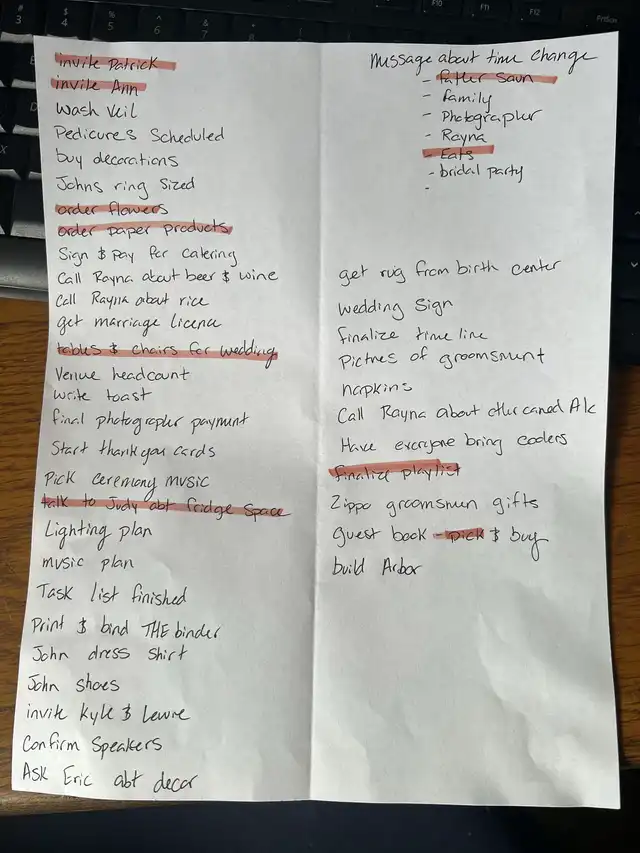 invite Patrick
invite Ann
Wash Veil
Pedicures Scheduled
buy decorations
Johns ring Sized
order flowers
order paper products
Sign $ pay for catering
Call Rayna about beer $ wine
Call Rayna about rice
get marriage licence
tables $ chairs for wedding
Venue headcount
write toast
final photographer payment
Start thank you cards
Pick ceremony music
talk to Judy abt fridge space
Lighting plan
music plan
Task list finished
Print $ bind THE binder
John dress shirt
John shoes
invite Kyle $
Confirm Speakers
Ask Eric abt decor
message about time change
- father
- family
- Photographer
- Rayna
- Eats
- bridal party
-
get rug from birth center
wedding Sign
finalize time line
Pictures of groomsment
napkins
Call Rayna about other caned Alc
Have everyone bring coolers
finalize playlist
Zippo groomsmen gifts
guest book - pick $ buy
build Arbor